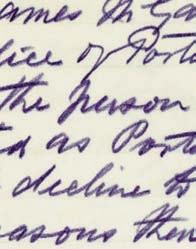 ames M Ga
ffice of Posto
the person
ed as Posto
decline to
easons then